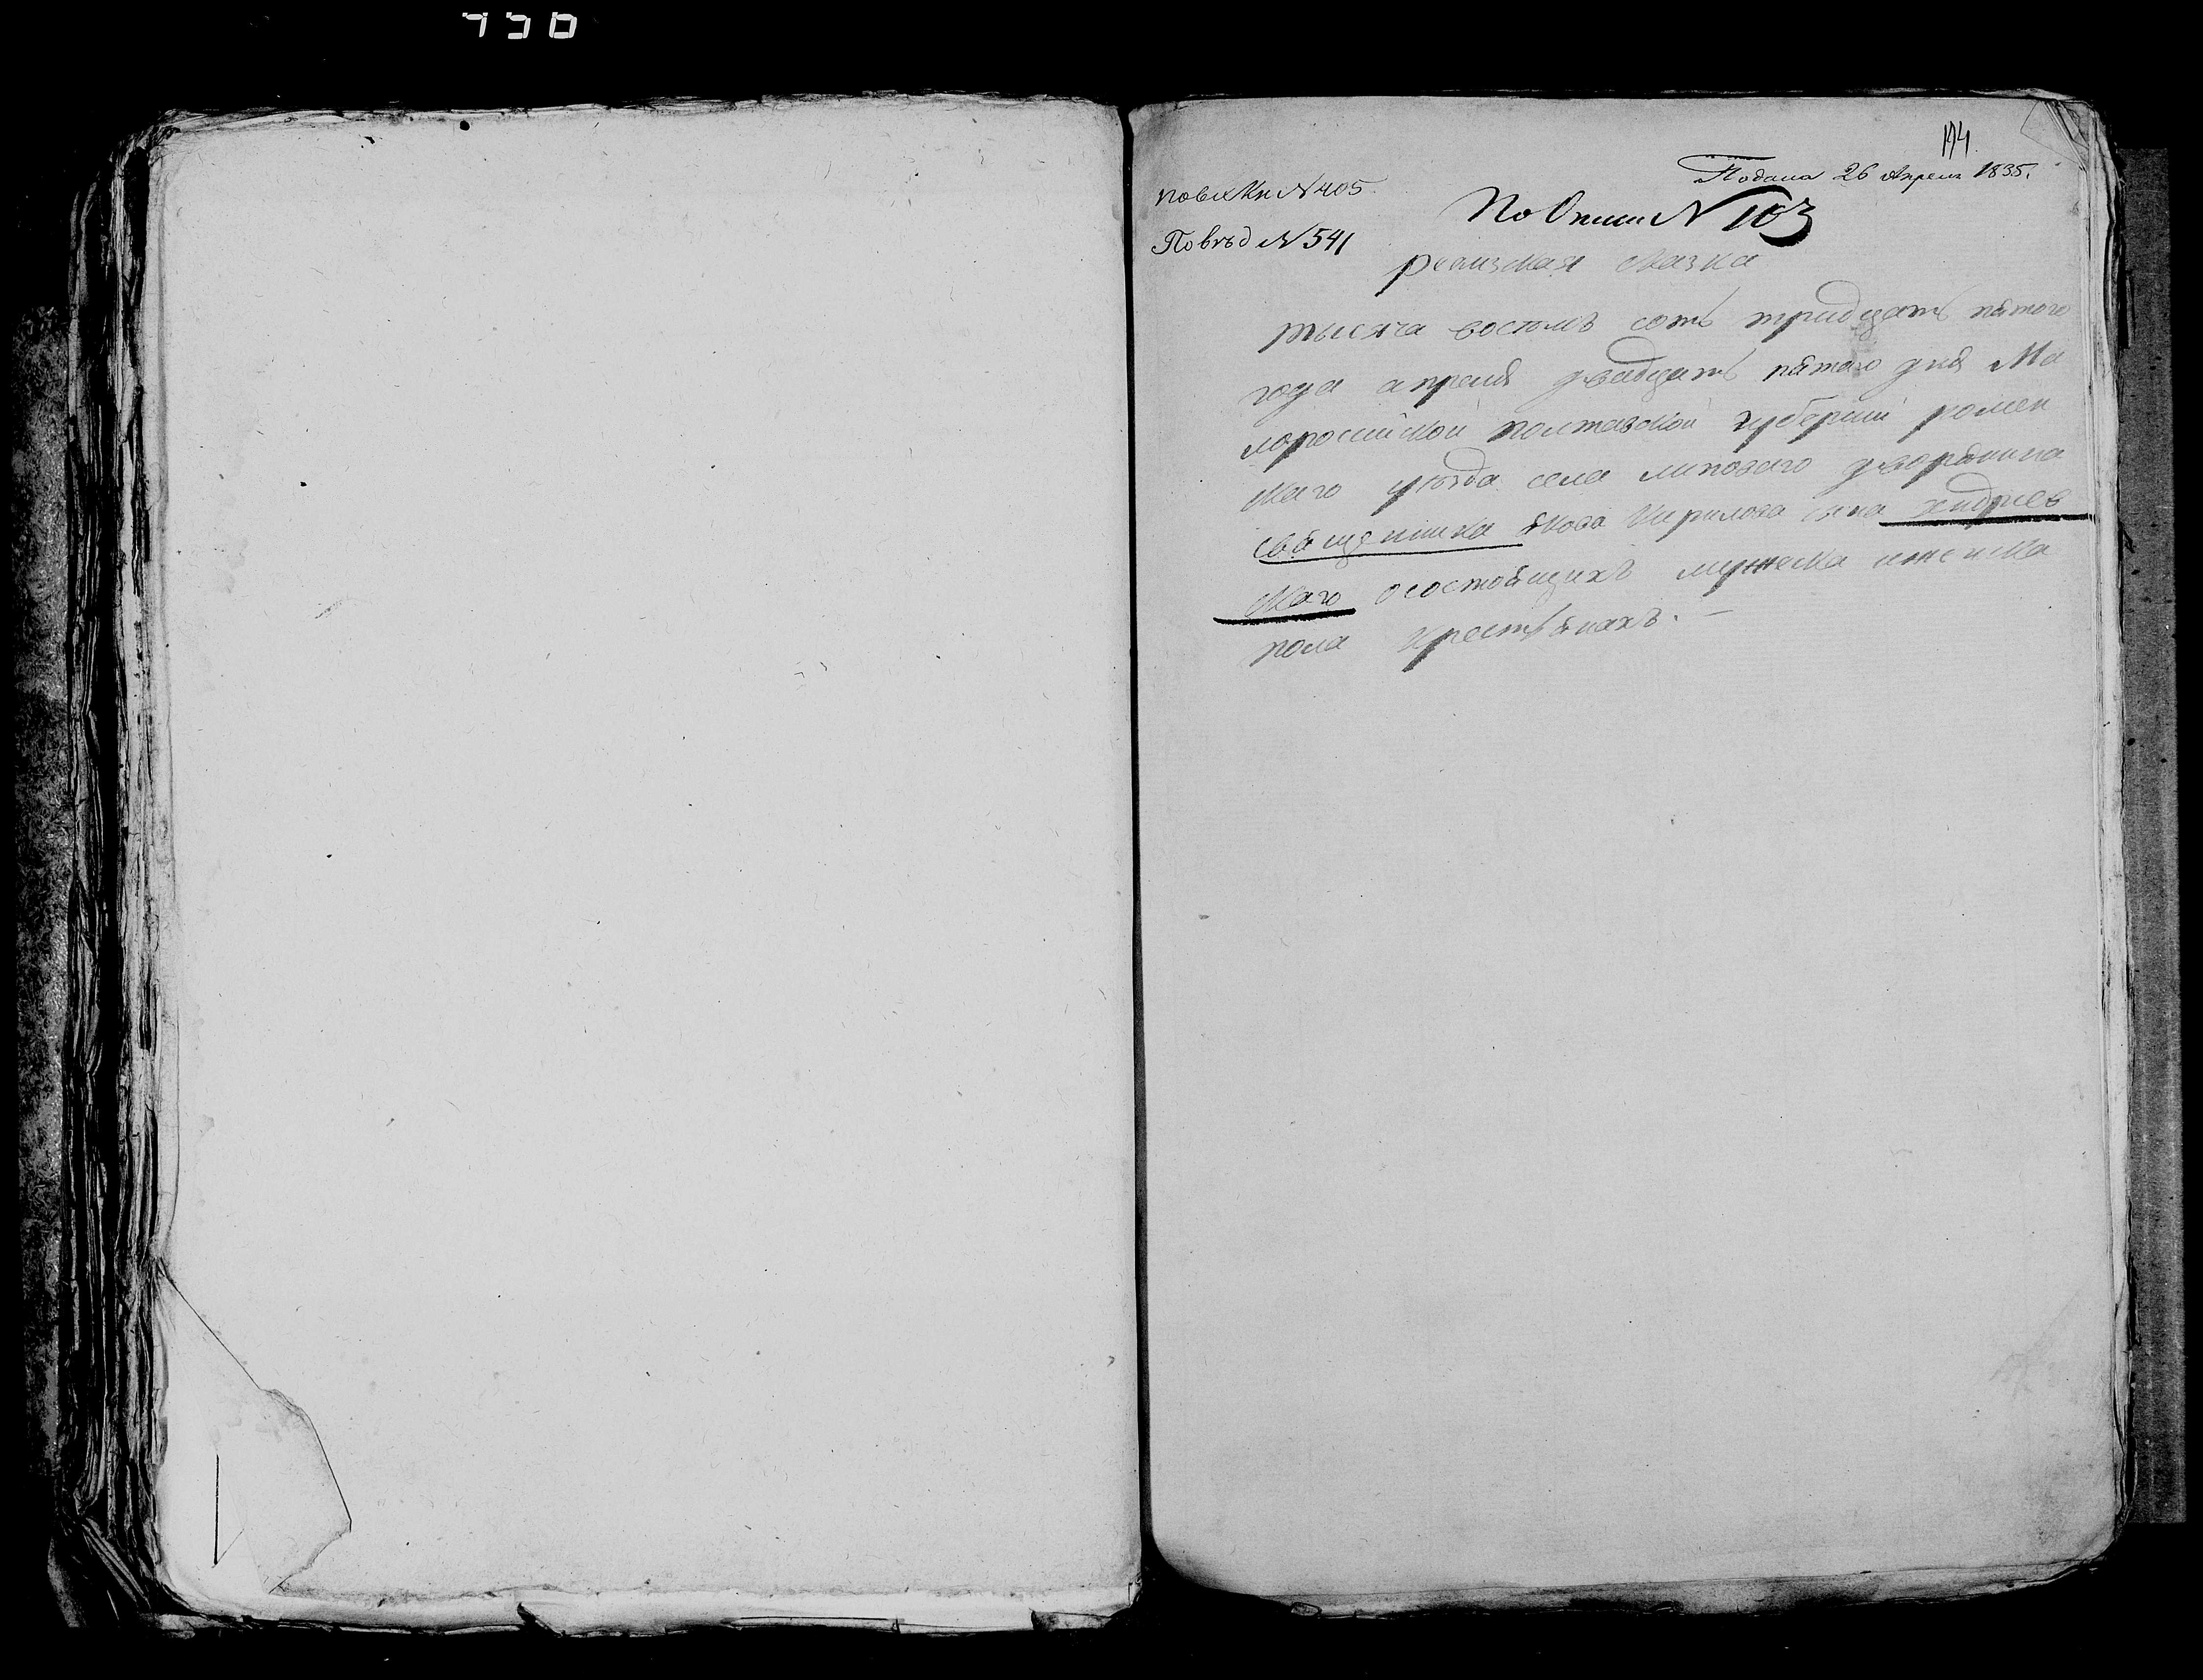 194
Подана 26 Апреля 1835.
По вх Кн N 405
По Описи N 103
По вѣд N 541
ревизская сказка
тысяча восемъ сотъ тридцать пятого
года апреля двадцать пятаго дня Ма
лоросийской полтавской губернии ромен
скаго уѣзда села липоваго дворянина
священника якова Кирилова сына андриев
скаго осостоящихъ мужеска иженска
пола Крестьянахъ. —